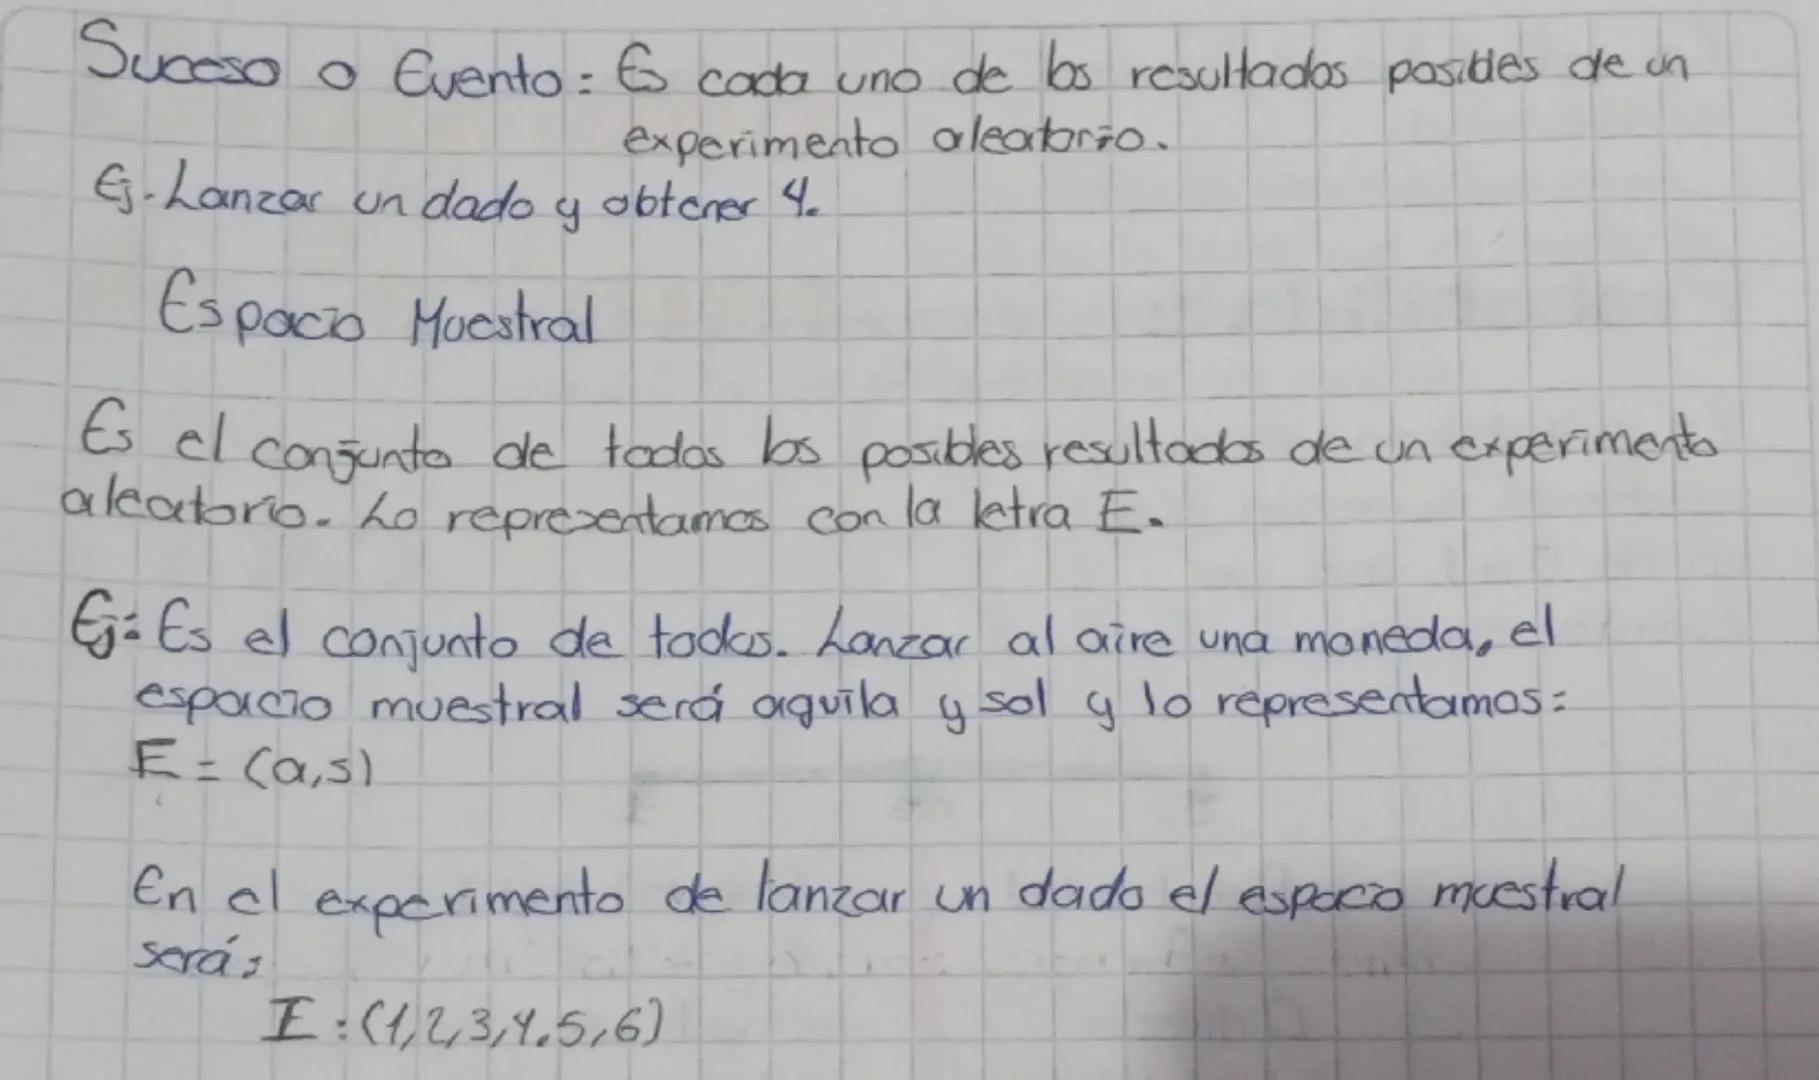 Suceso o Evento: Es cada uno de los resultados posibles de un
experimento aleatorio.
Ej. Lanzar un dado y obtener 4.
Espacio Muestral
Es el conjunto de todos los posibles resultados de un experimento
aleatorio. Lo representamos con la letra E.
Ej: Es el conjunto de todos. Lanzar al aire una moneda, el
espacio muestral será aguila y sol y lo representamos:
E = (a,s)
En el experimento de lanzar un dado el espacio muestral
será:
E: (1,2,3,4,5,6)